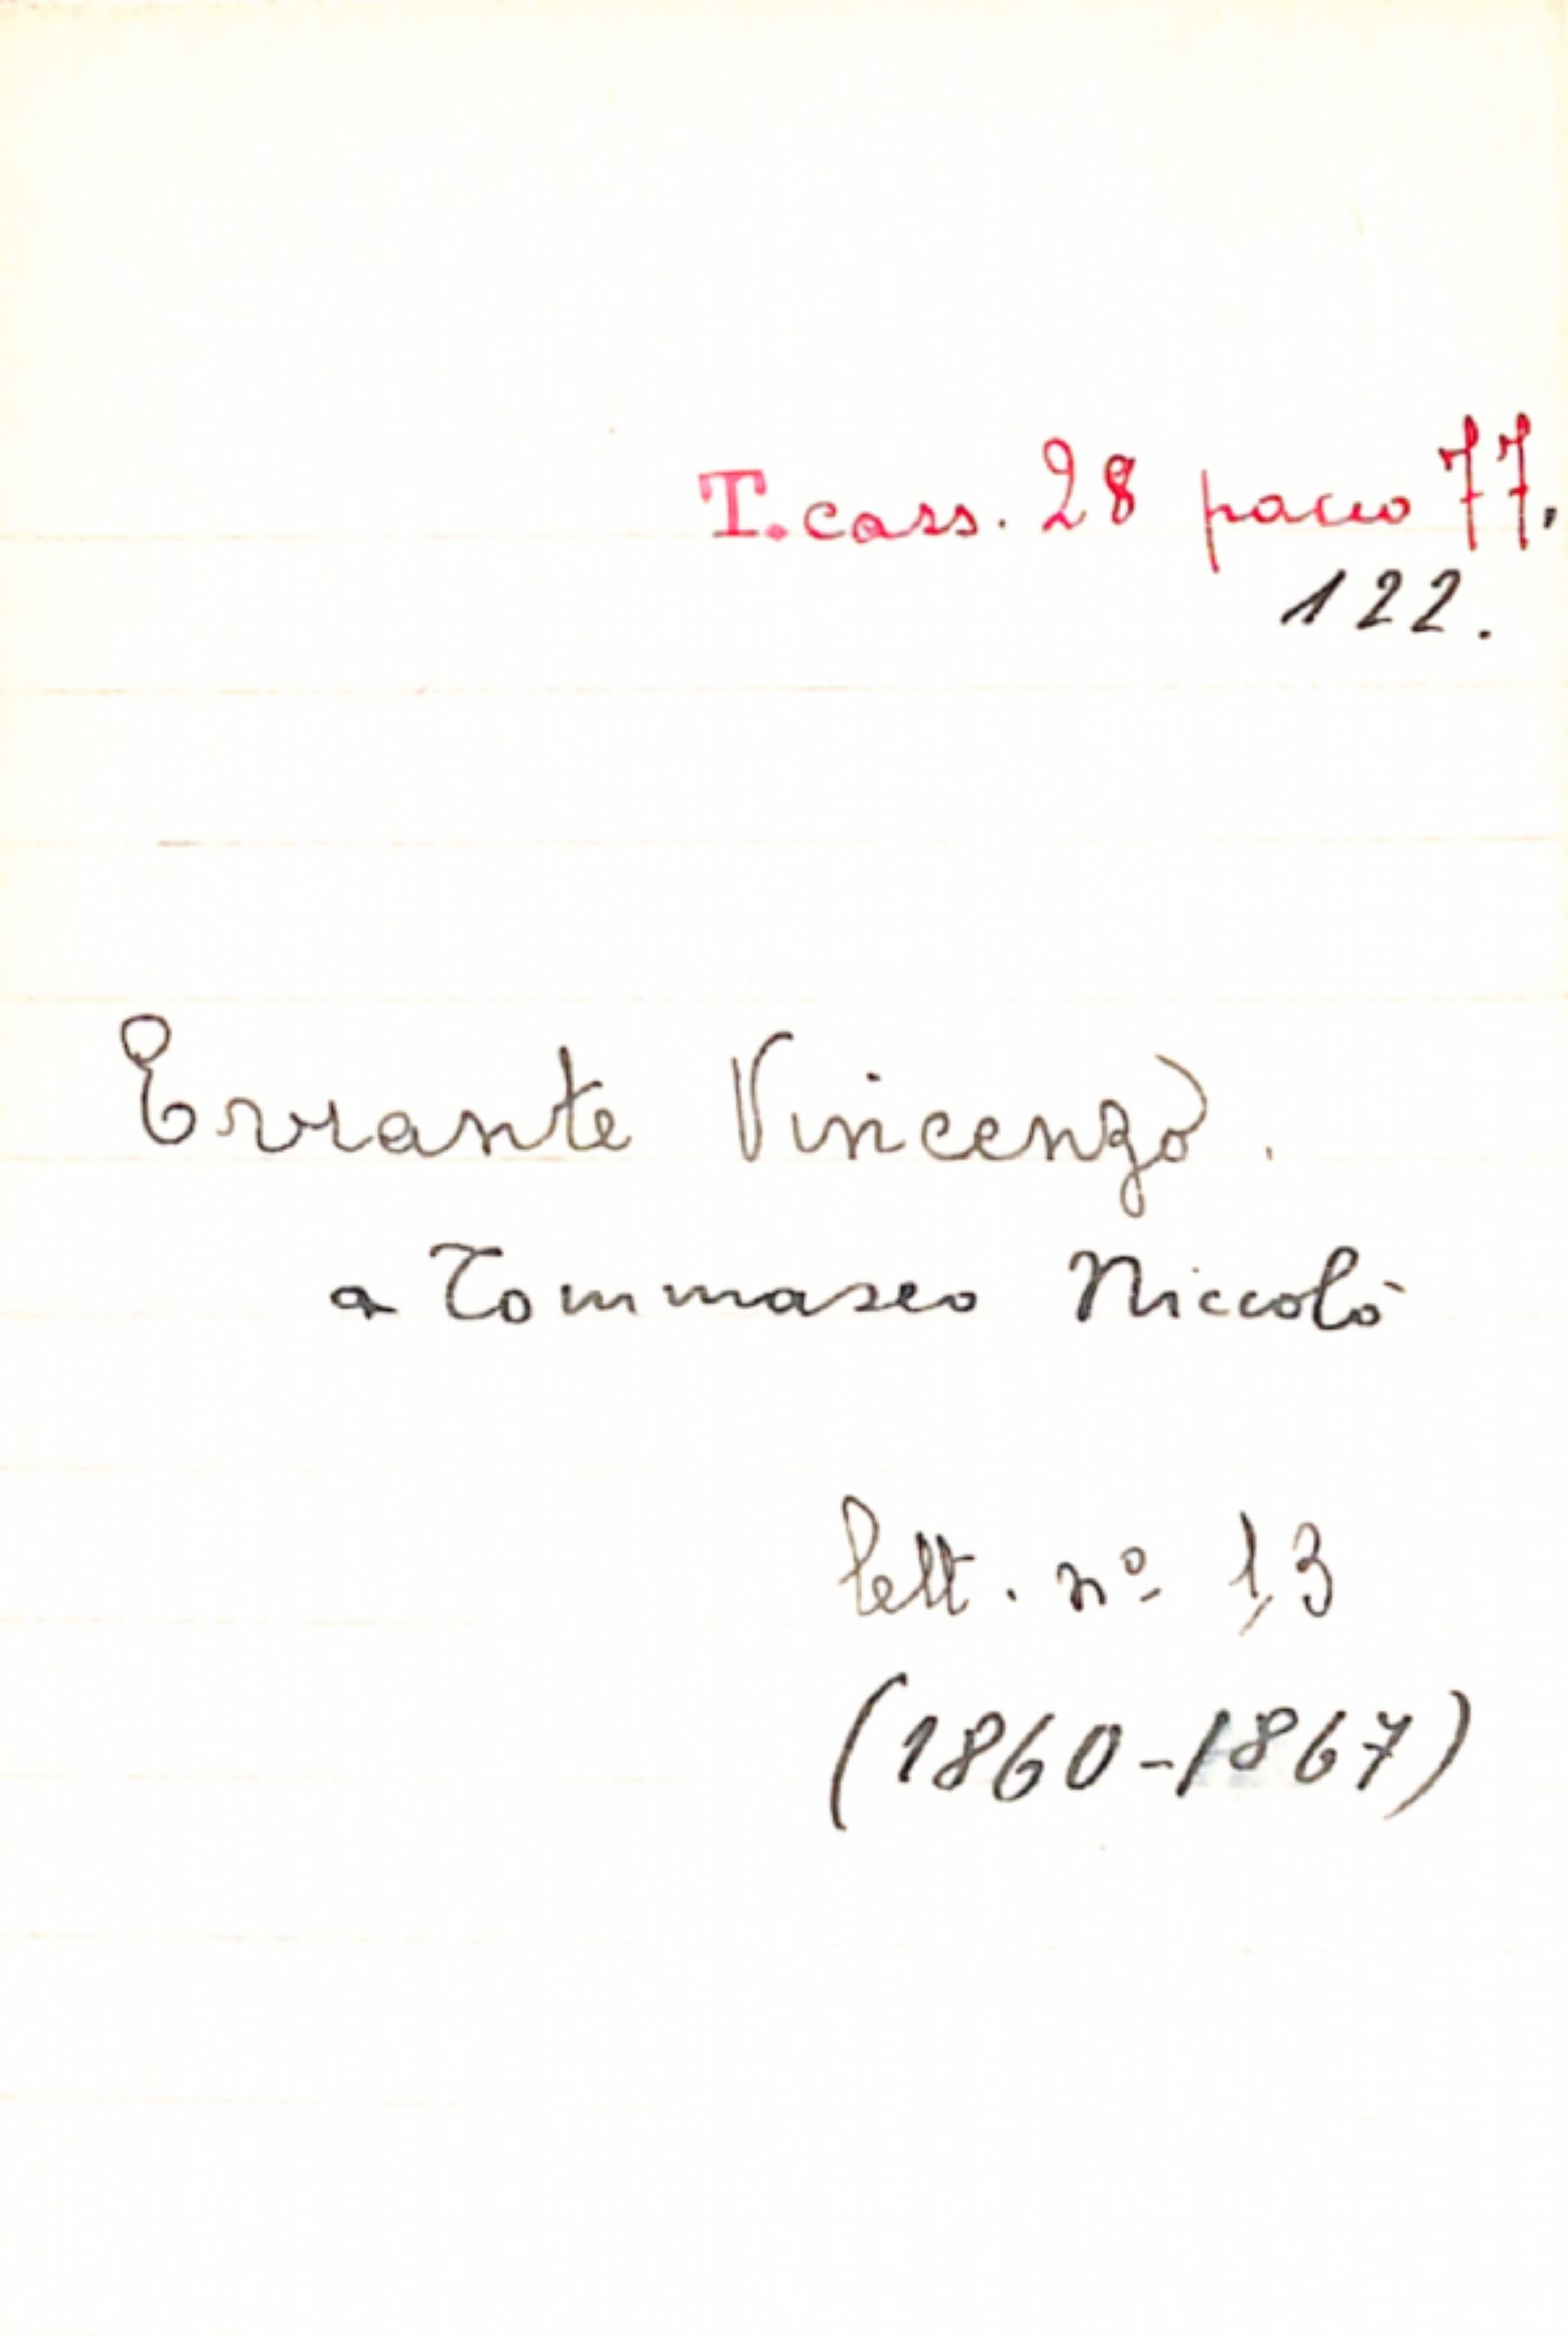 T. cass. 28 pacco 77,
122.
Errante Vincenzo.
a Tommaseo Niccolò
lett. nº 13
(1860-1867)